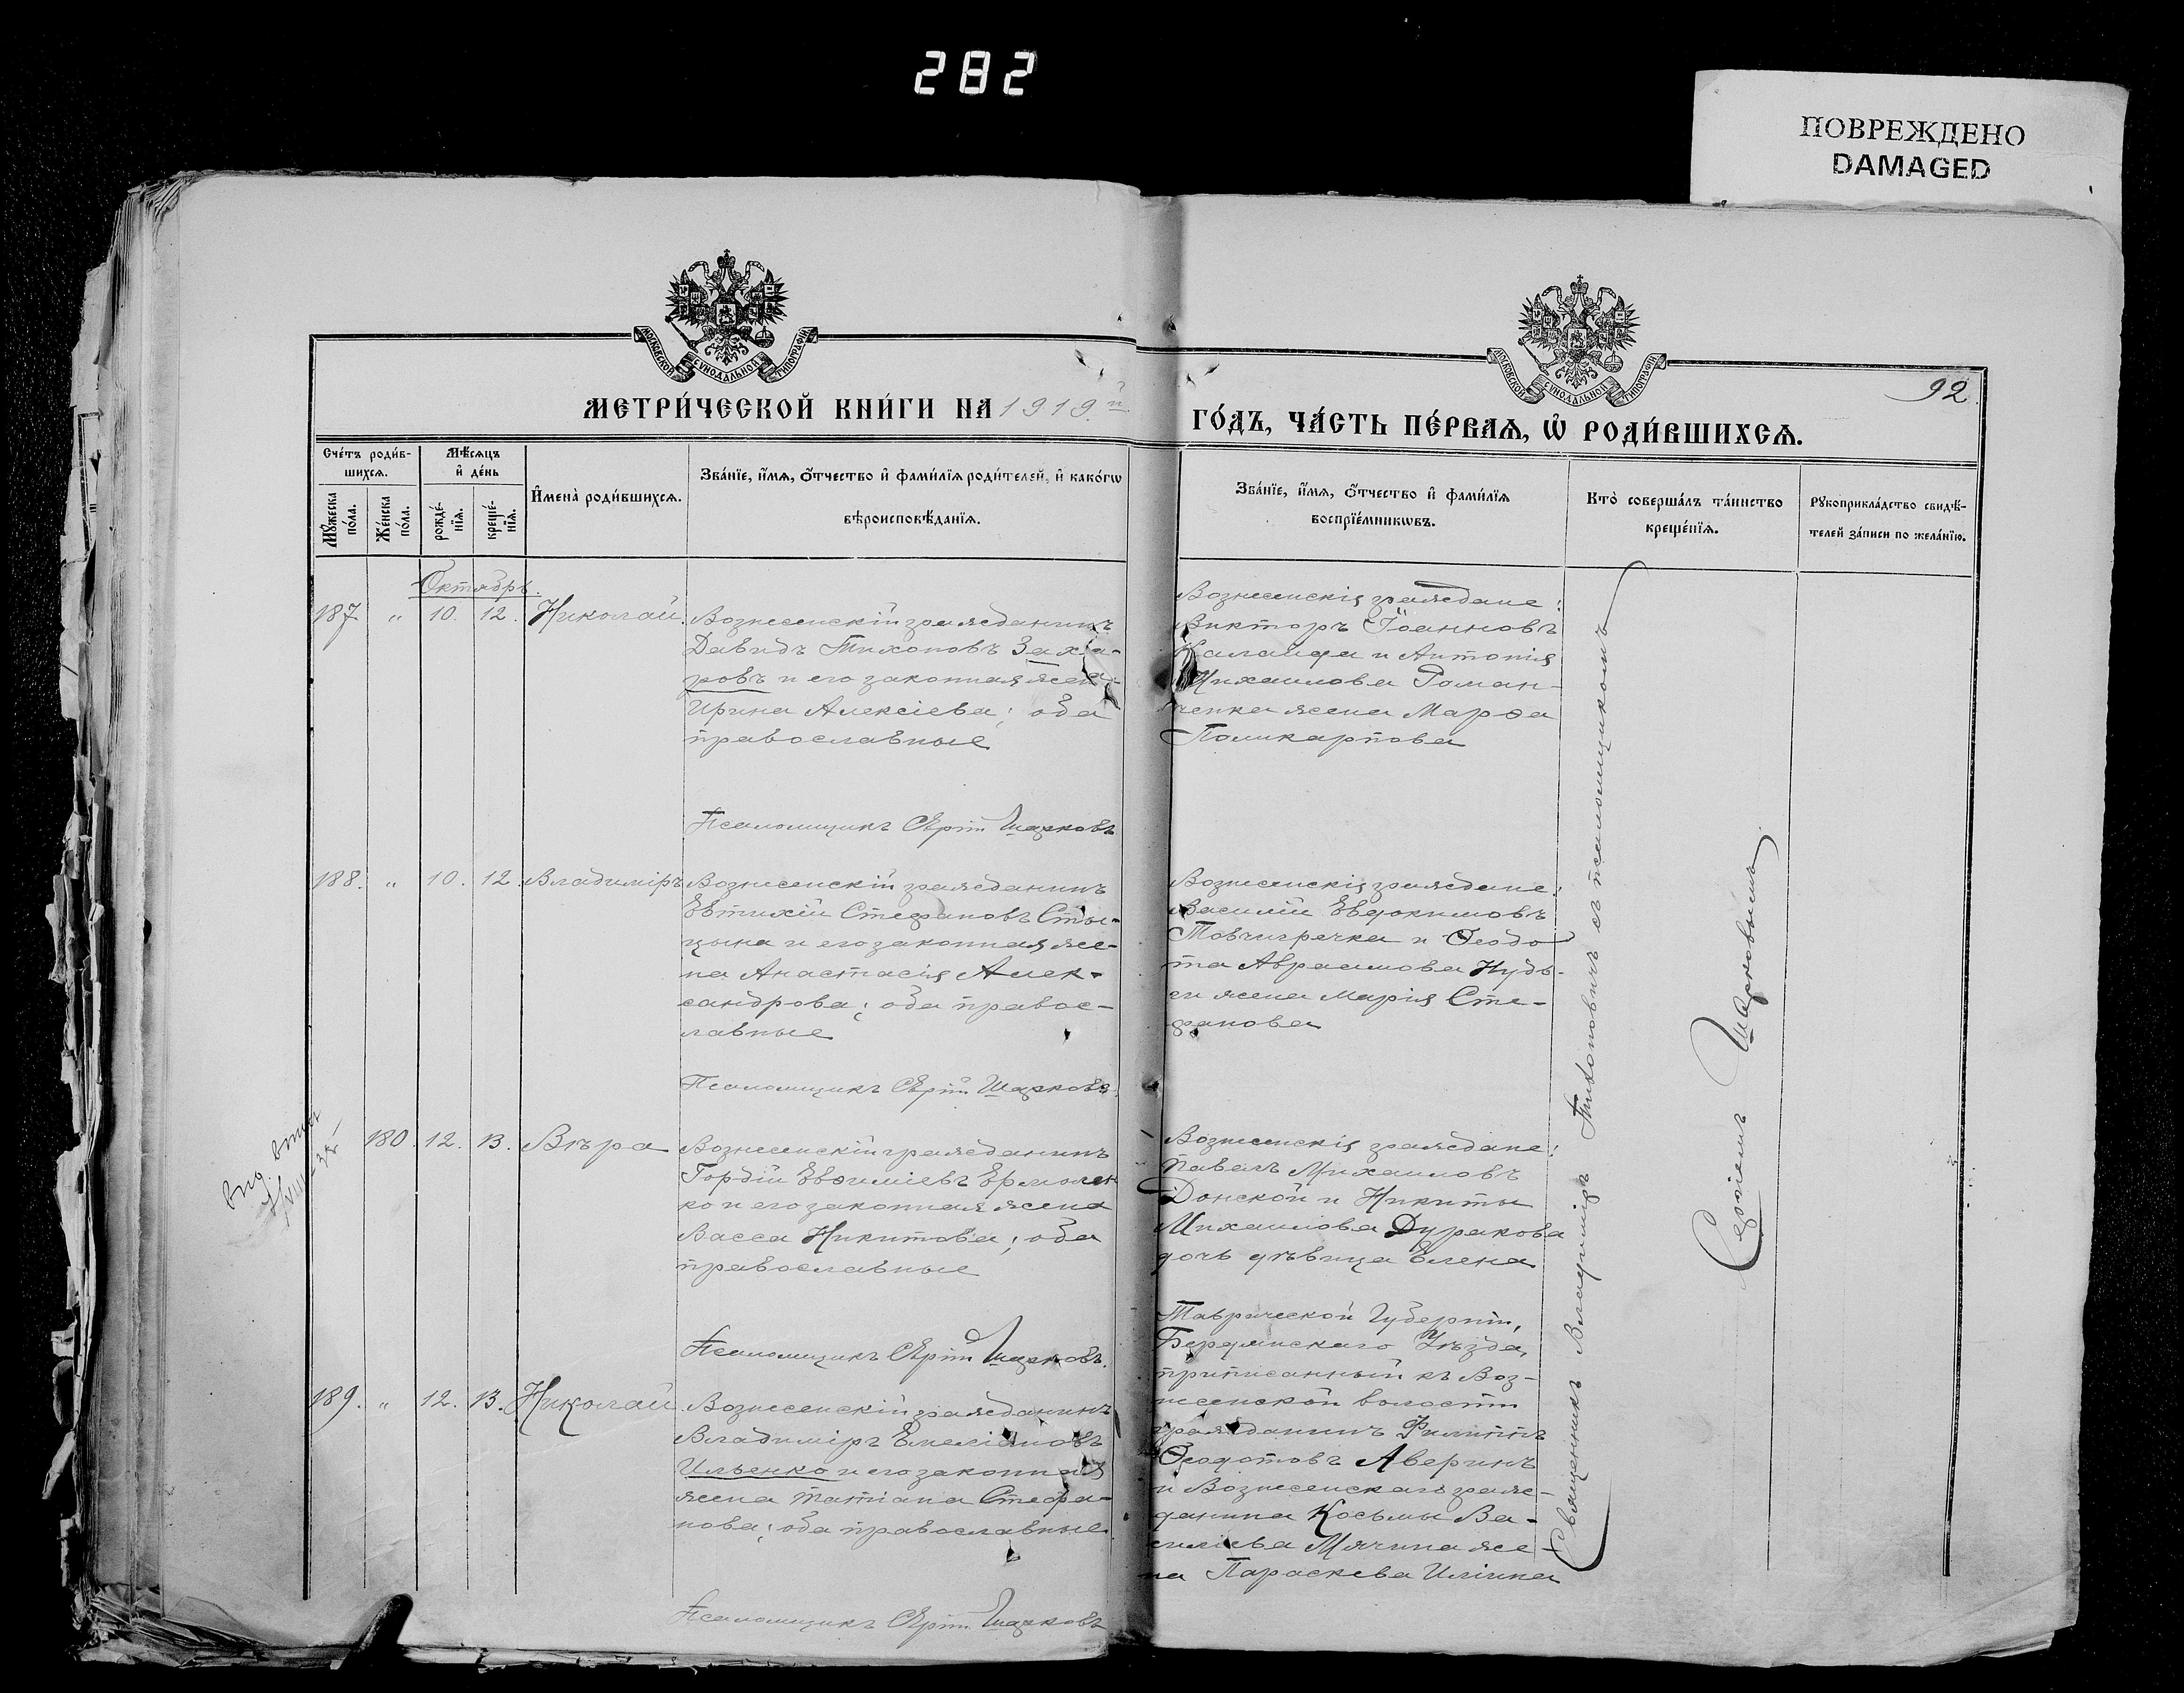 282
ПОВРЕЖДЕНО
DAMAGED
МОСКОВСКОЙ СУНОДАЛЬНОЙ ТИПОГРАФІИ
МОСКОВСКОЙ СУНОДАЛЬНОЙ ТИПОГРАФІИ
92
МЕТРИ́ЧЕСКОЙ КНИ́ГИ НА 1919й
ГО́ДЪ, ЧА́СТЬ ПЕ́РВАѦ, Ѽ РОДИ́ВШИХСѦ.
Сче́тъ роди́в-
шихсѧ.
Мꙋ́жеска
по́ла.
Же́нска
по́ла.
Мѣ́сѧцъ
и҆ де́нь
рожде́-
нїѧ.
креще́-
нїѧ.
И҆мена̀ роди́вшихсѧ.
Зва́нїе, и҆́мѧ, ѻ҆́тчество и҆ фами́лїѧ роди́телей, и҆ како́гѡ
вѣроисповѣ́данїѧ.
Зва́нїе, и҆́мѧ, ѻ҆́тчество и҆ фами́лїѧ
воспрїе́мникѡвъ.
Кто̀ соверша́лъ та́инство
креще́нїѧ.
Рꙋкоприкла́дство свидѣ́-
телей за́писи по жела́нїю.
Октябрь.
187 " 10. 12. Николай.
Вознесенскій гражданинъ
Давидъ Тихоновъ Заха-
ровъ и его законная жена
Ирина Алексіева; оба
православные
Псаломщикъ Сергій Шарковъ
Вознесенскія граждане:
Викторъ Іоанновъ
и Антонія
Михаилова Роман-
ченка жена Марѳа
Поликарпова
188. " 10. 12. Владиміръ
Вознесенскій гражданинъ
Евтихій Стефановъ Сты-
цына и его законная же-
на Анастасія Алек-
сандрова; оба правос-
лавные
Псаломщикъ Сергій Шарковъ
Вознесенскія граждане:
Василій Евдокимовъ
Товчигречка и Ѳеодо
та Авраамова Нудь-
ги жена Марія Сте-
фанова
180. 12. 13. Вѣра
Вознесенскій гражданинъ
Гордій Евѳиміевъ Ермолен
ко и его законная жена
Васса Никитова; оба
православные
Псаломщикъ Сергій Шарковъ.
Вознесенскія граждане:
Павелъ Михаиловъ
Донской и Никиты
Михаилова Дуракова
дочь дѣвица Елена
189. " 12. 13. Николай
Вознесенскій гражданинъ
Владиміръ Емеліановъ
Ильенко и его законная
жена Татіана Стефа-
нова; оба православные.
Псаломщикъ Сергій Шарковъ
Таврической Губерніи,
Бердянскаго Уѣзда,
приписанный къ Воз-
несенской волости
гражданинъ Филиппъ
Ѳеодотовъ Аверинъ
и Вознесенскаго граж-
данина Косьмы Ва-
силіева Мячина же-
на Параскева Иліина
Священникъ Владиміръ Тихоновичъ съ псаломщикомъ
Сергіемъ Шарковымъ